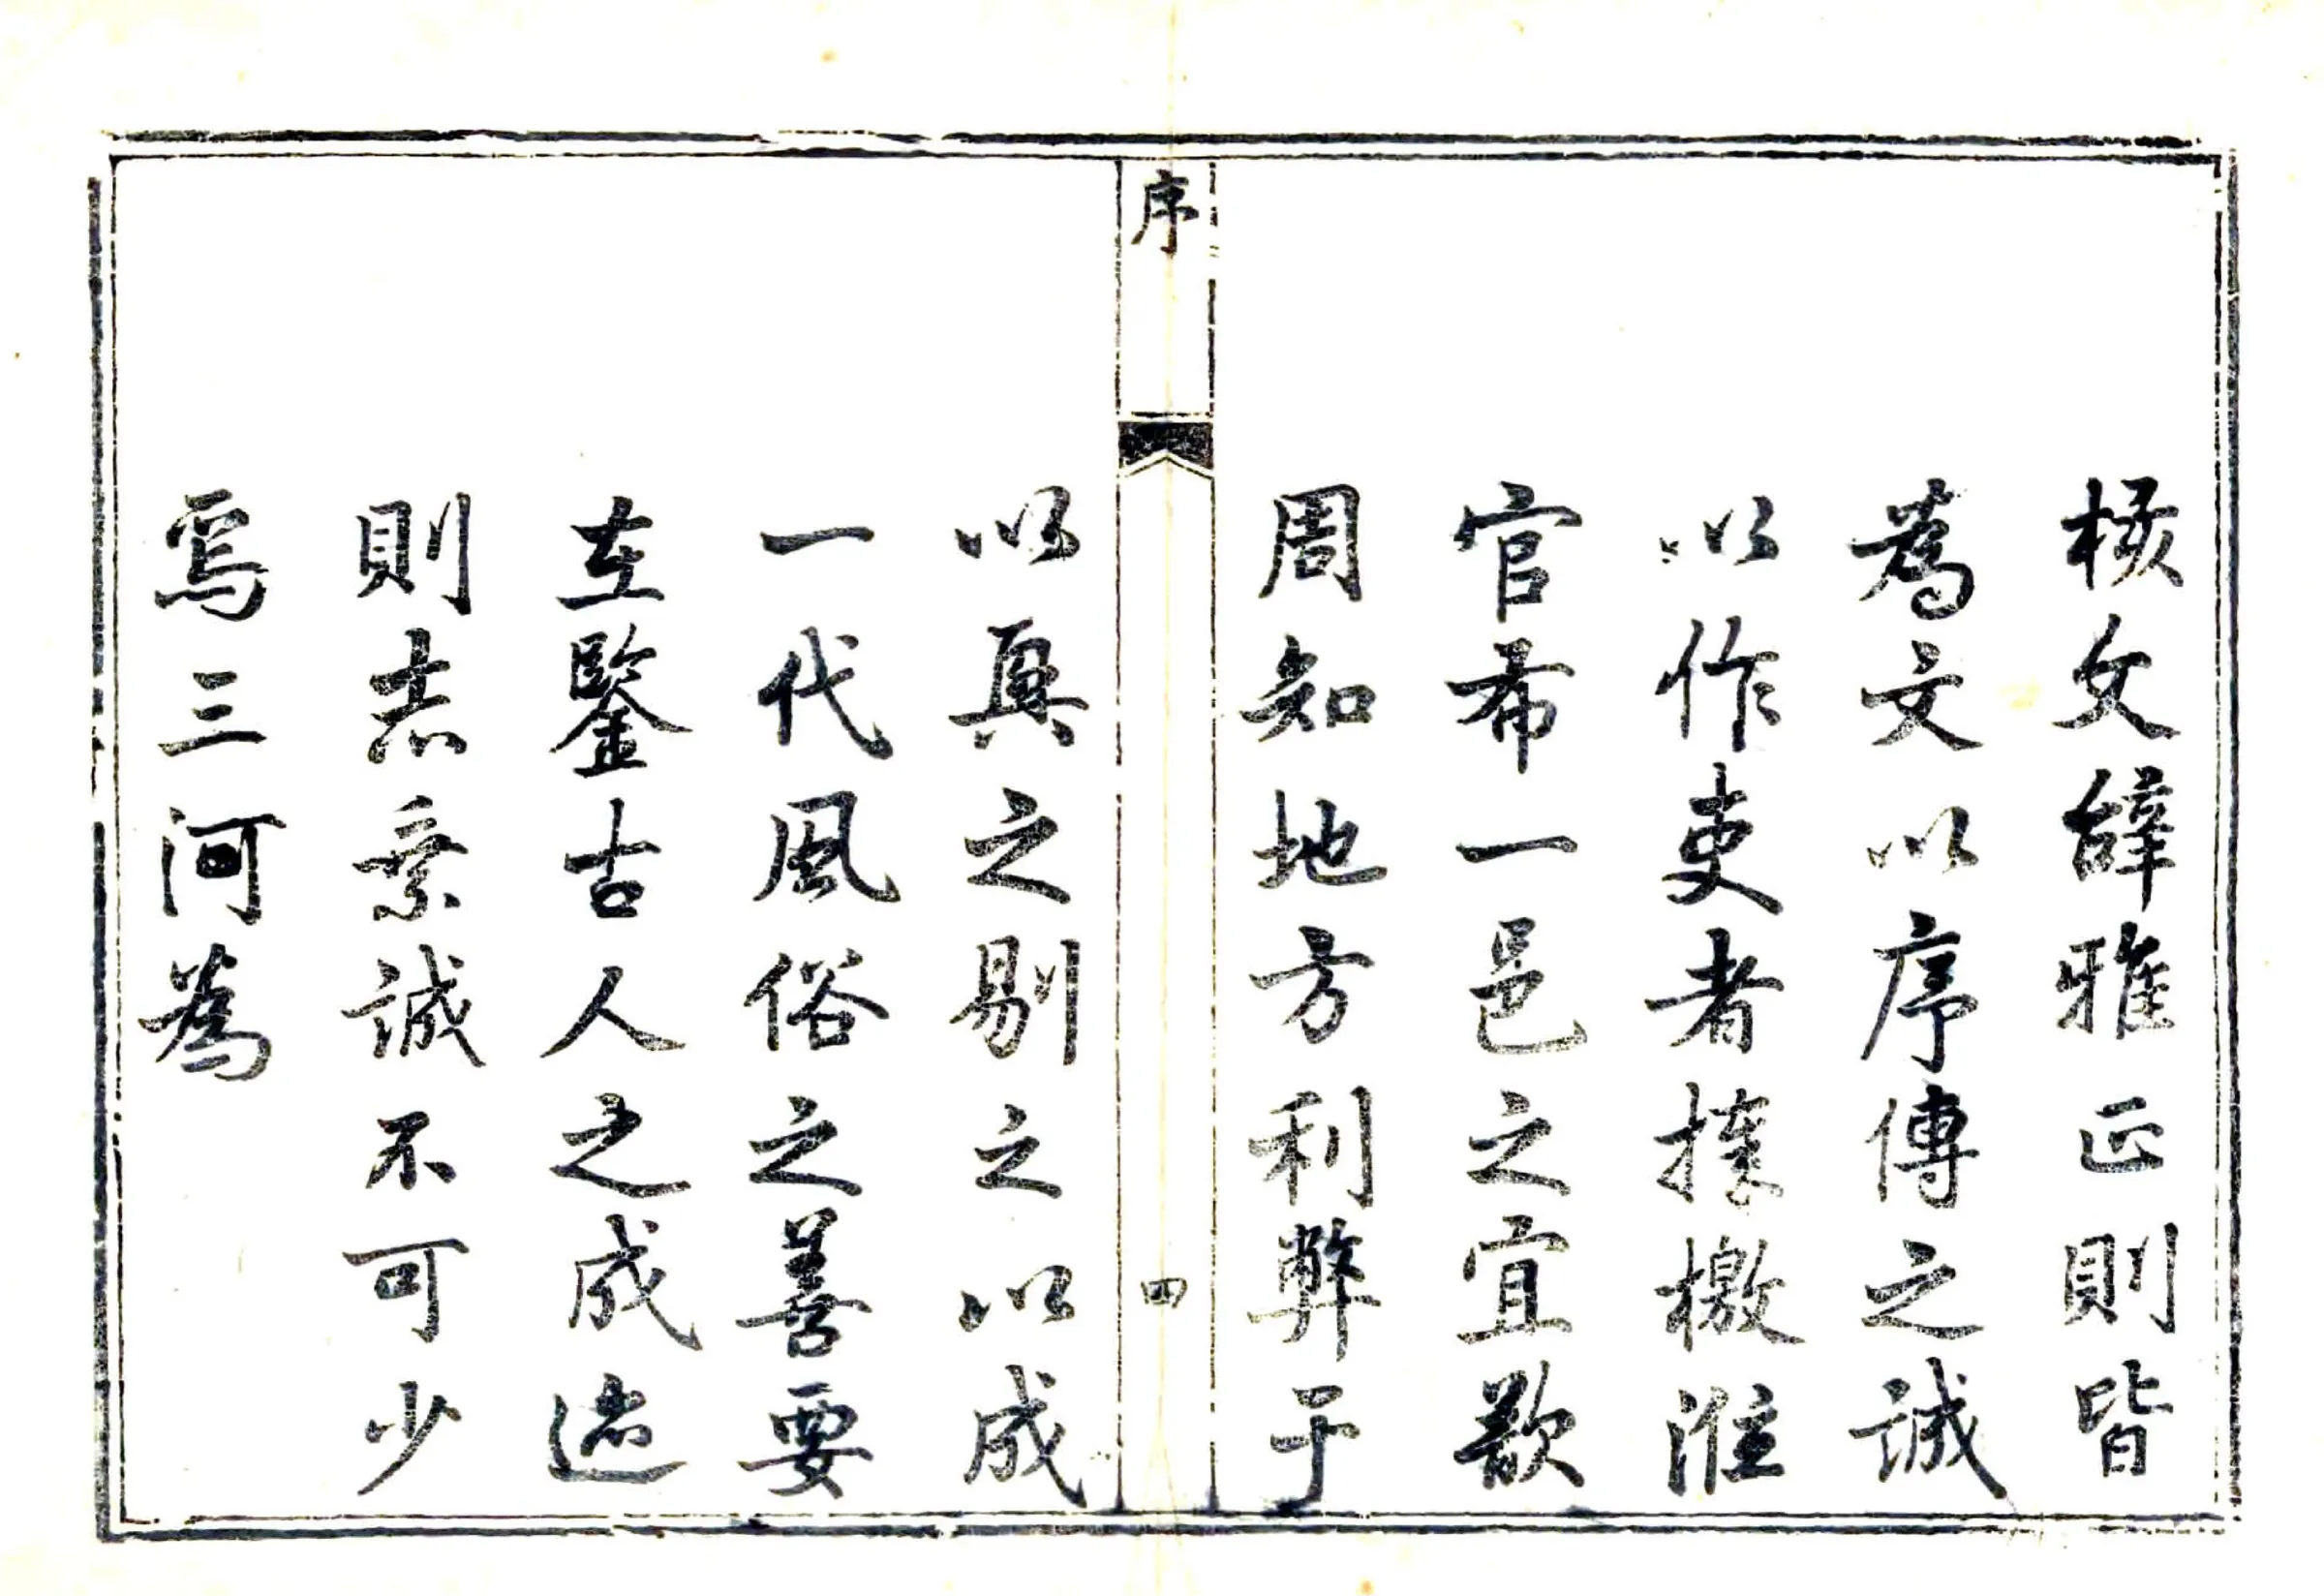 核文辭雅正則皆
為文以序傳之誠
以作吏者檄淮
官希一邑之宜歟
周知地方利弊于
序
四
以興之剔之以成
一代風俗之善要
在鑒古人之成迹
則志乘誠不可少
焉三河為